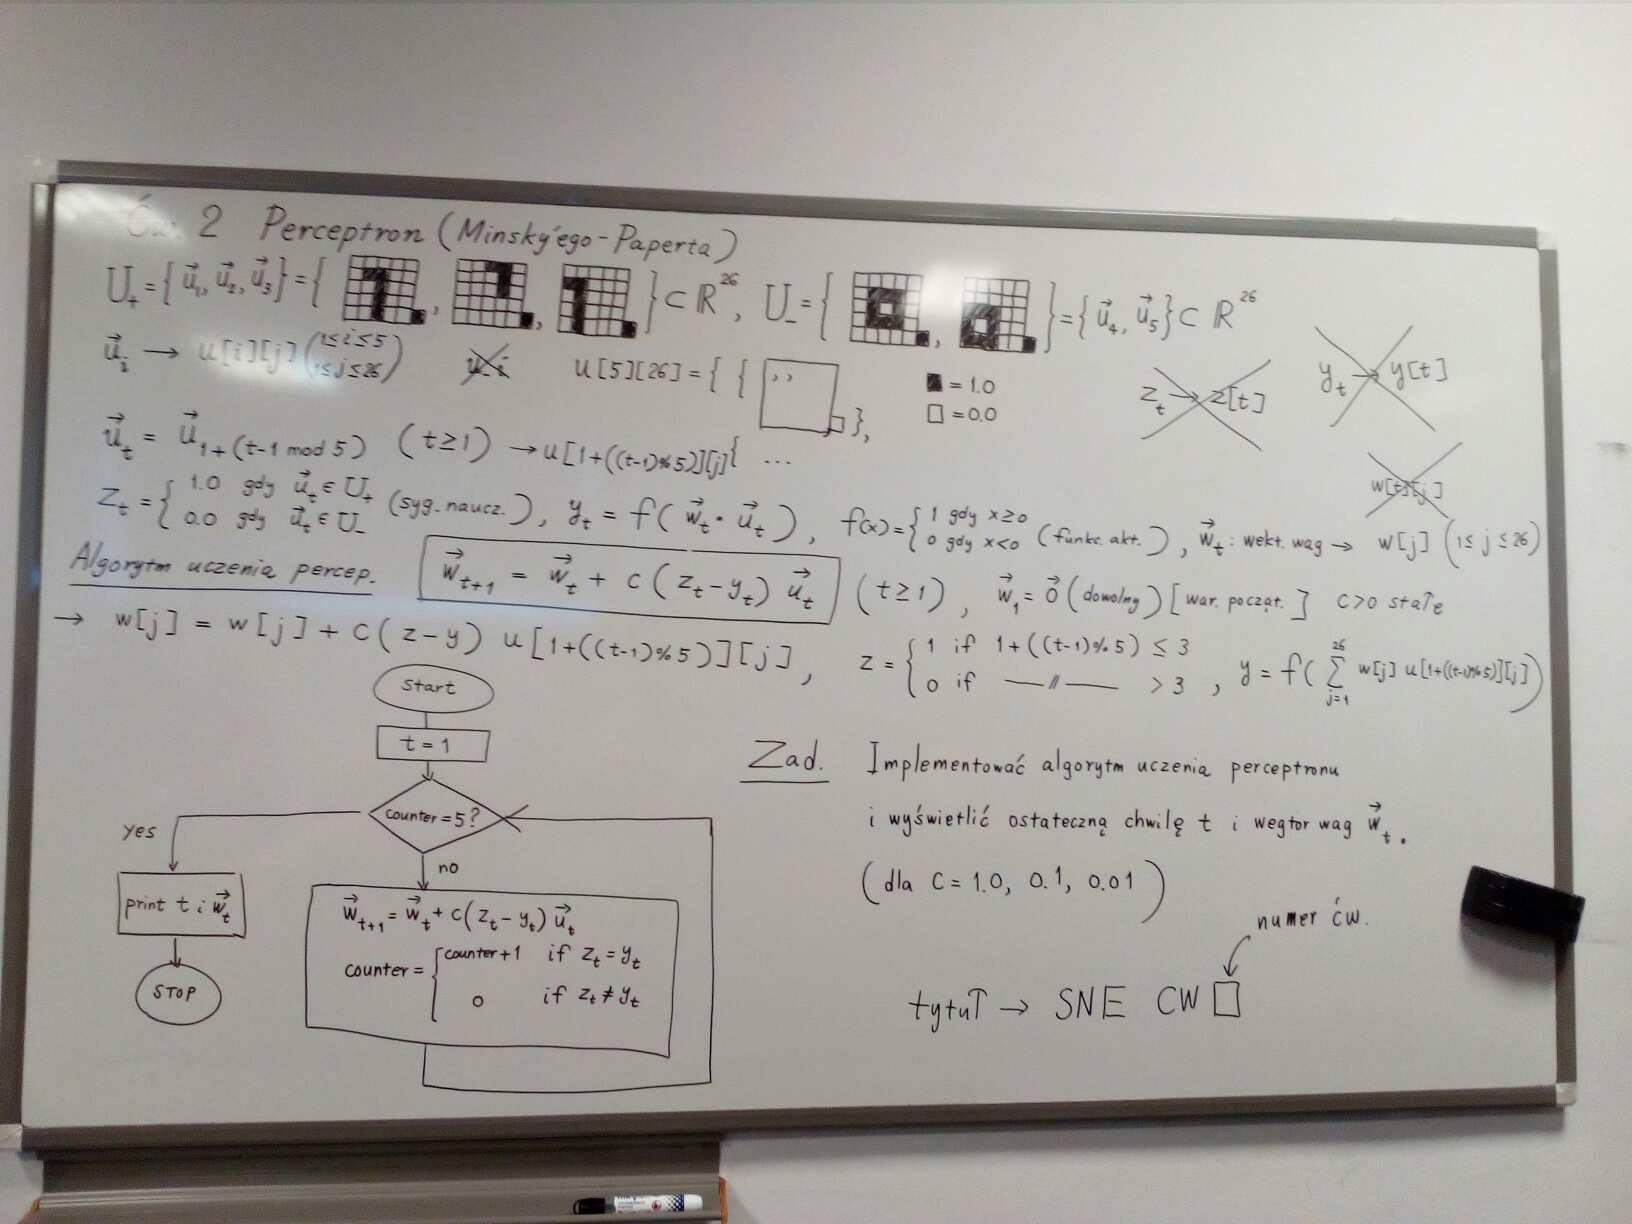 Ćw. 2 Perceptron (Minsky'ego-Paperta)
U₊ = { u⃗₁, u⃗₂, u⃗₃ } = { , , } ⊂ ℝ²⁶, U₋ = { , } = { u⃗₄, u⃗₅ } ⊂ ℝ²⁶
u⃗ᵢ → u[i][j] (1≤i≤5 1≤j≤26) u[5][26] = { { ,, }, ■ = 1.0 □ = 0.0 z_t → z[t] y_t → y[t]
u⃗_t = u⃗_{1+(t-1 mod 5)} (t≥1) → u[1+((t-1)%5)][j] { ... w[t][j]
z_t = { 1.0 gdy u⃗_t ∈ U₊ 0.0 gdy u⃗_t ∈ U₋ (syg. naucz.), y_t = f( w⃗_t · u⃗_t ), f(x) = { 1 gdy x≥0 0 gdy x<0 (funkc. akt.), w⃗_t : wekt. wag → w[j] (1≤ j ≤26)
Algorytm uczenia percep. w⃗_{t+1} = w⃗_t + c (z_t - y_t) u⃗_t (t≥1), w⃗₁ = 0⃗ (dowolny) [war. począt.] c>0 stałe
→ w[j] = w[j] + c(z-y) u[1+((t-1)%5)][j], z = { 1 if 1+((t-1)%5) ≤ 3 0 if —〃— > 3, y = f( Σ_{j=1}^{26} w[j] u[1+((t-1)%5)][j] )
Start
t = 1
counter = 5?
yes
no
print t i w⃗_t
STOP
w⃗_{t+1} = w⃗_t + c(z_t - y_t) u⃗_t
counter = { counter+1 if z_t = y_t
0 if z_t ≠ y_t
Zad. Implementować algorytm uczenia perceptronu
i wyświetlić ostateczną chwilę t i wegtor wag w⃗_t.
(dla C = 1.0, 0.1, 0.01)
numer ćw.
tytuł → SNE CW □